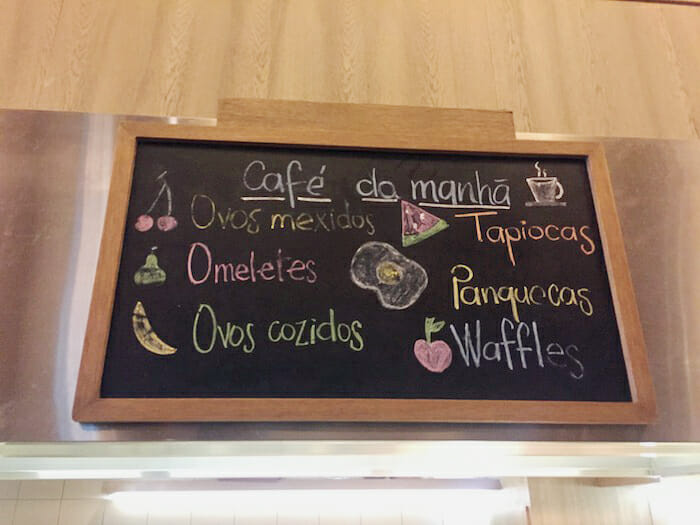 Café da manhã
Ovos mexidos
Omeletes
Ovos cozidos
Tapiocas
Panquecas
Waffles